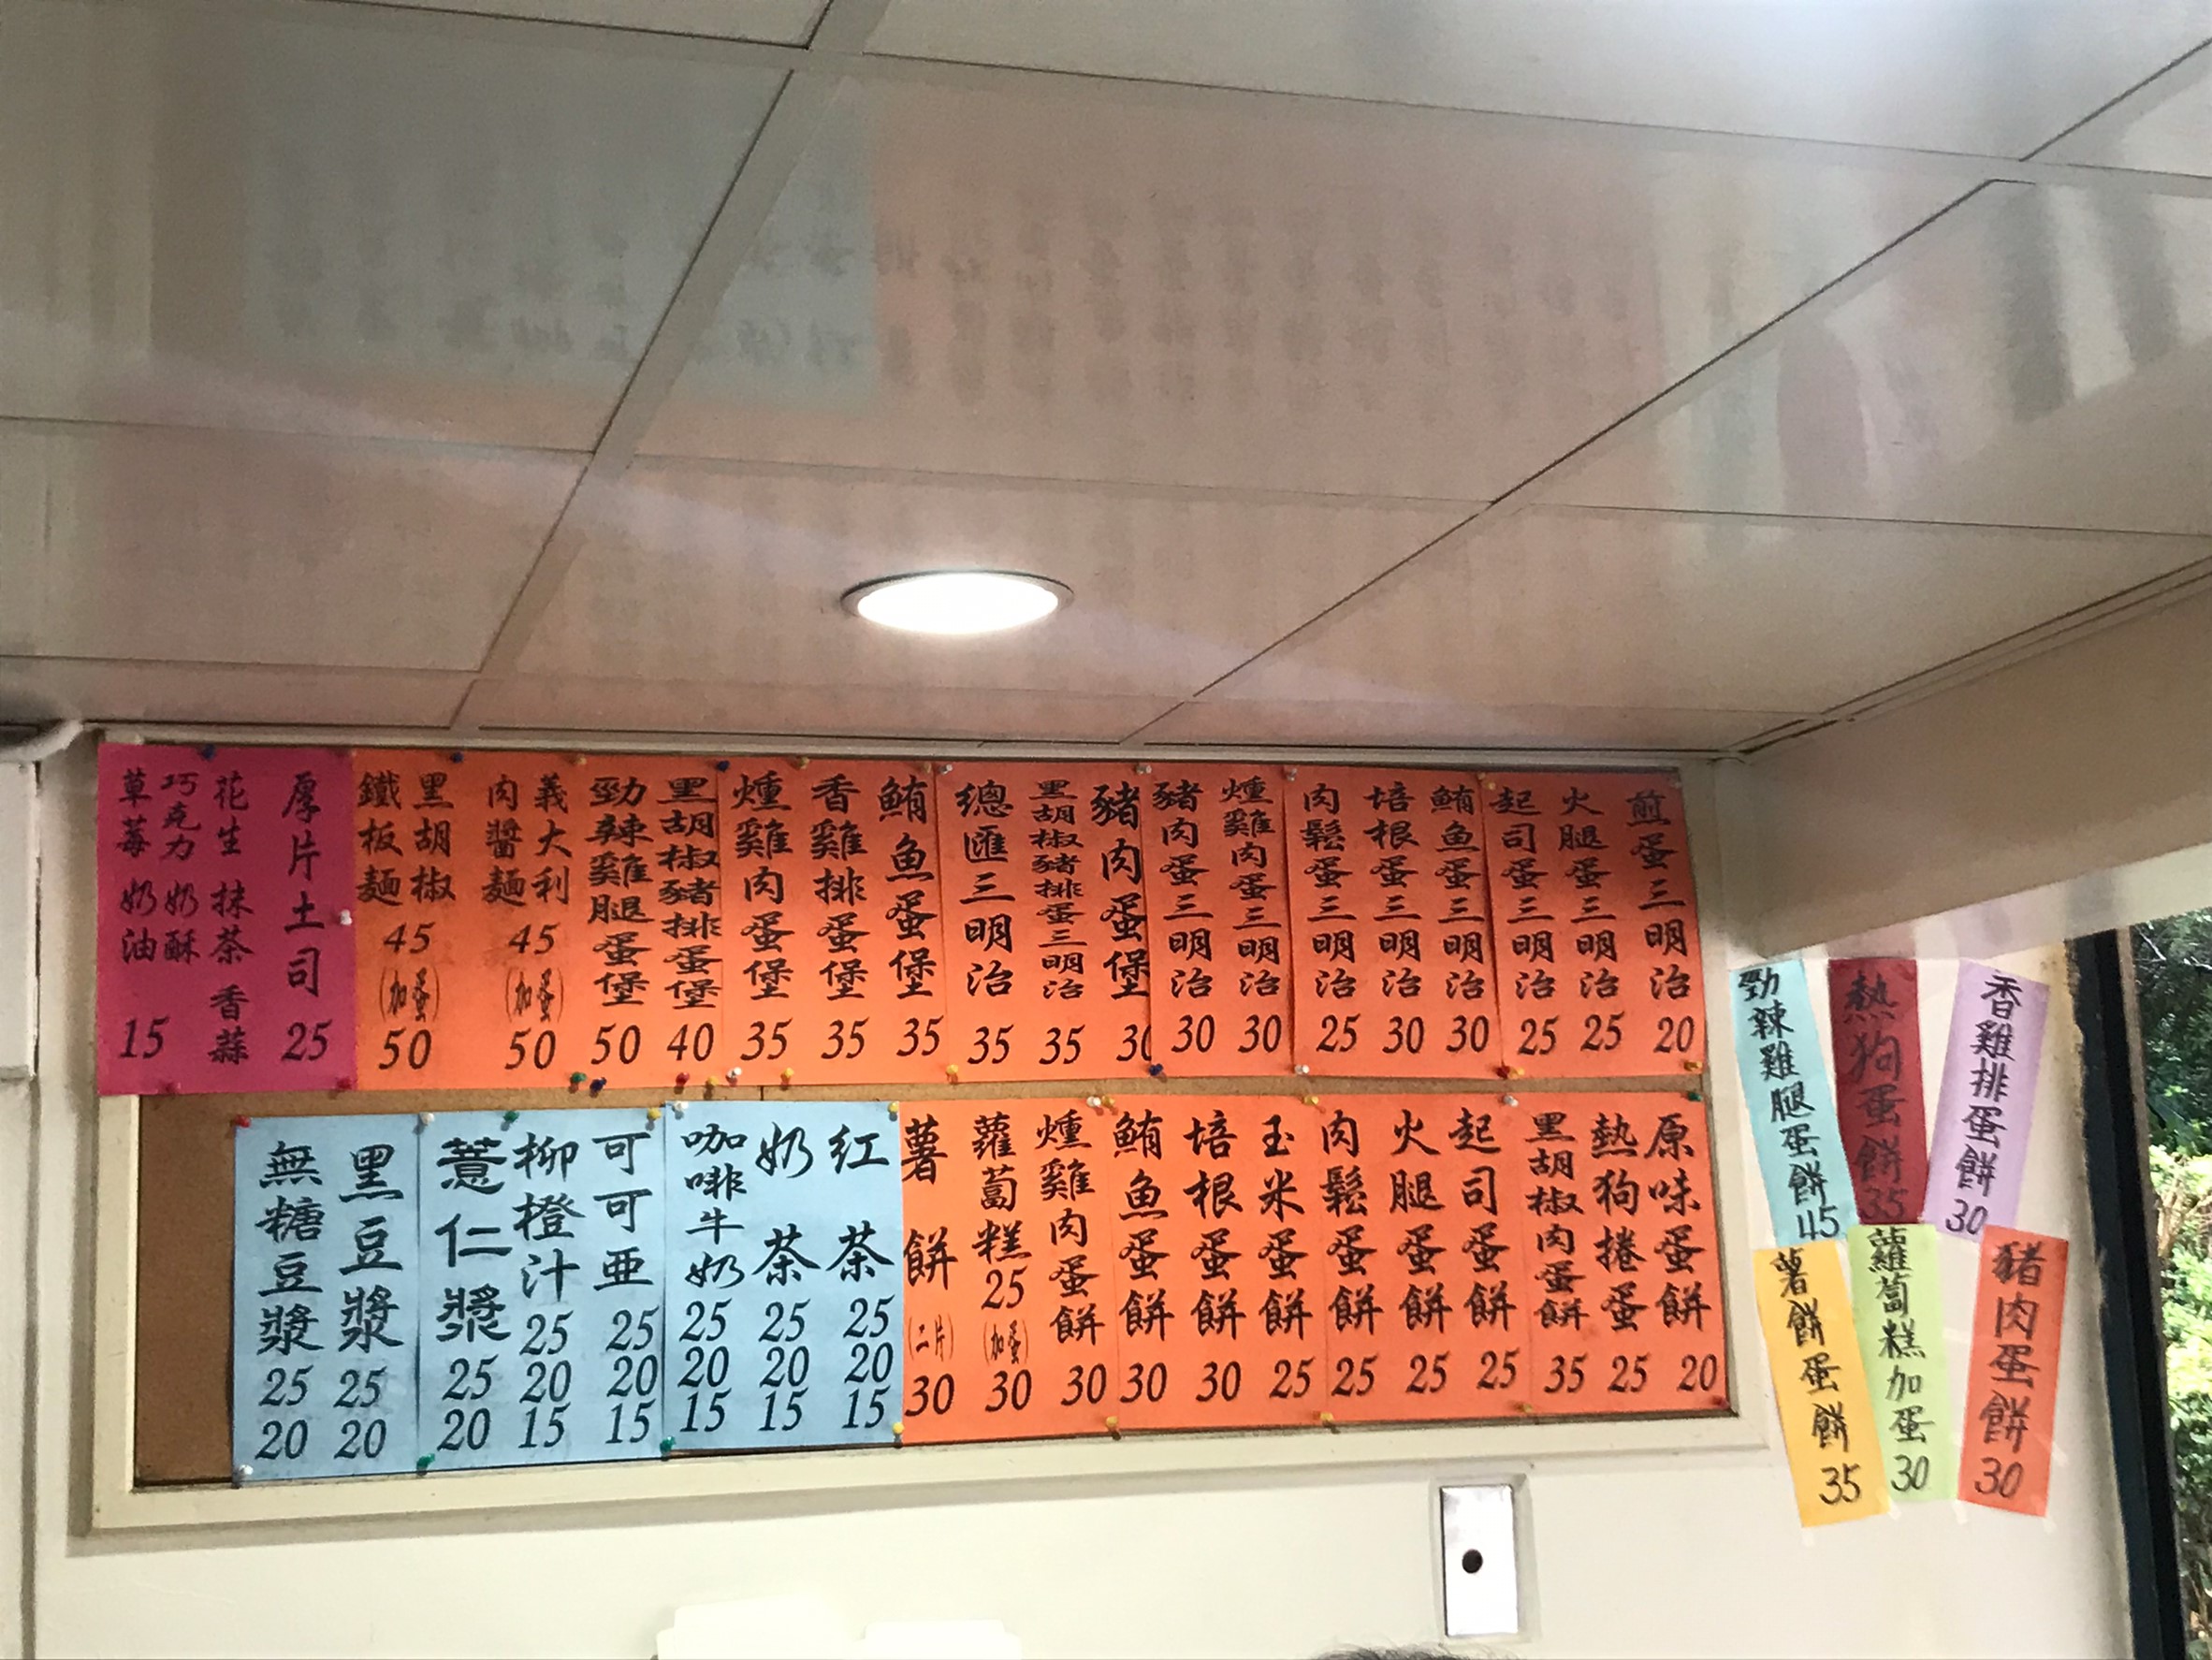 煎蛋三明治 20
火腿蛋三明治 25
起司蛋三明治 25
鮪魚蛋三明治 30
培根蛋三明治 30
肉鬆蛋三明治 25
燻雞肉蛋三明治 30
豬肉蛋三明治 30
豬肉蛋堡 30
黑胡椒豬排蛋三明治 35
總匯三明治 35
鮪魚蛋堡 35
香雞排蛋堡 35
燻雞肉蛋堡 35
黑胡椒豬排蛋堡 40
勁辣雞腿蛋堡 50
義大利
肉醬麵
45
(加蛋)
50
黑胡椒
鐵板麵
45
(加蛋)
50
厚片土司 25
花生 抹茶 香蒜
巧克力 奶酥
草莓 奶油 15
原味蛋餅 20
熱狗捲蛋 25
黑胡椒肉蛋餅 35
起司蛋餅 25
火腿蛋餅 25
肉鬆蛋餅 25
玉米蛋餅 25
培根蛋餅 30
鮪魚蛋餅 30
燻雞肉蛋餅 30
蘿蔔糕 25 (加蛋) 30
薯餅 (二片) 30
紅茶 25 20 15
奶茶 25 20 15
咖啡牛奶 25 20 15
可可亜 25 20 15
柳橙汁 25 20 15
薏仁漿 25 20
黑豆漿 25 20
無糖豆漿 25 20
香雞排蛋餅 30
熱狗蛋餅 35
勁辣雞腿蛋餅 45
豬肉蛋餅 30
蘿蔔糕加蛋 30
薯餅蛋餅 35